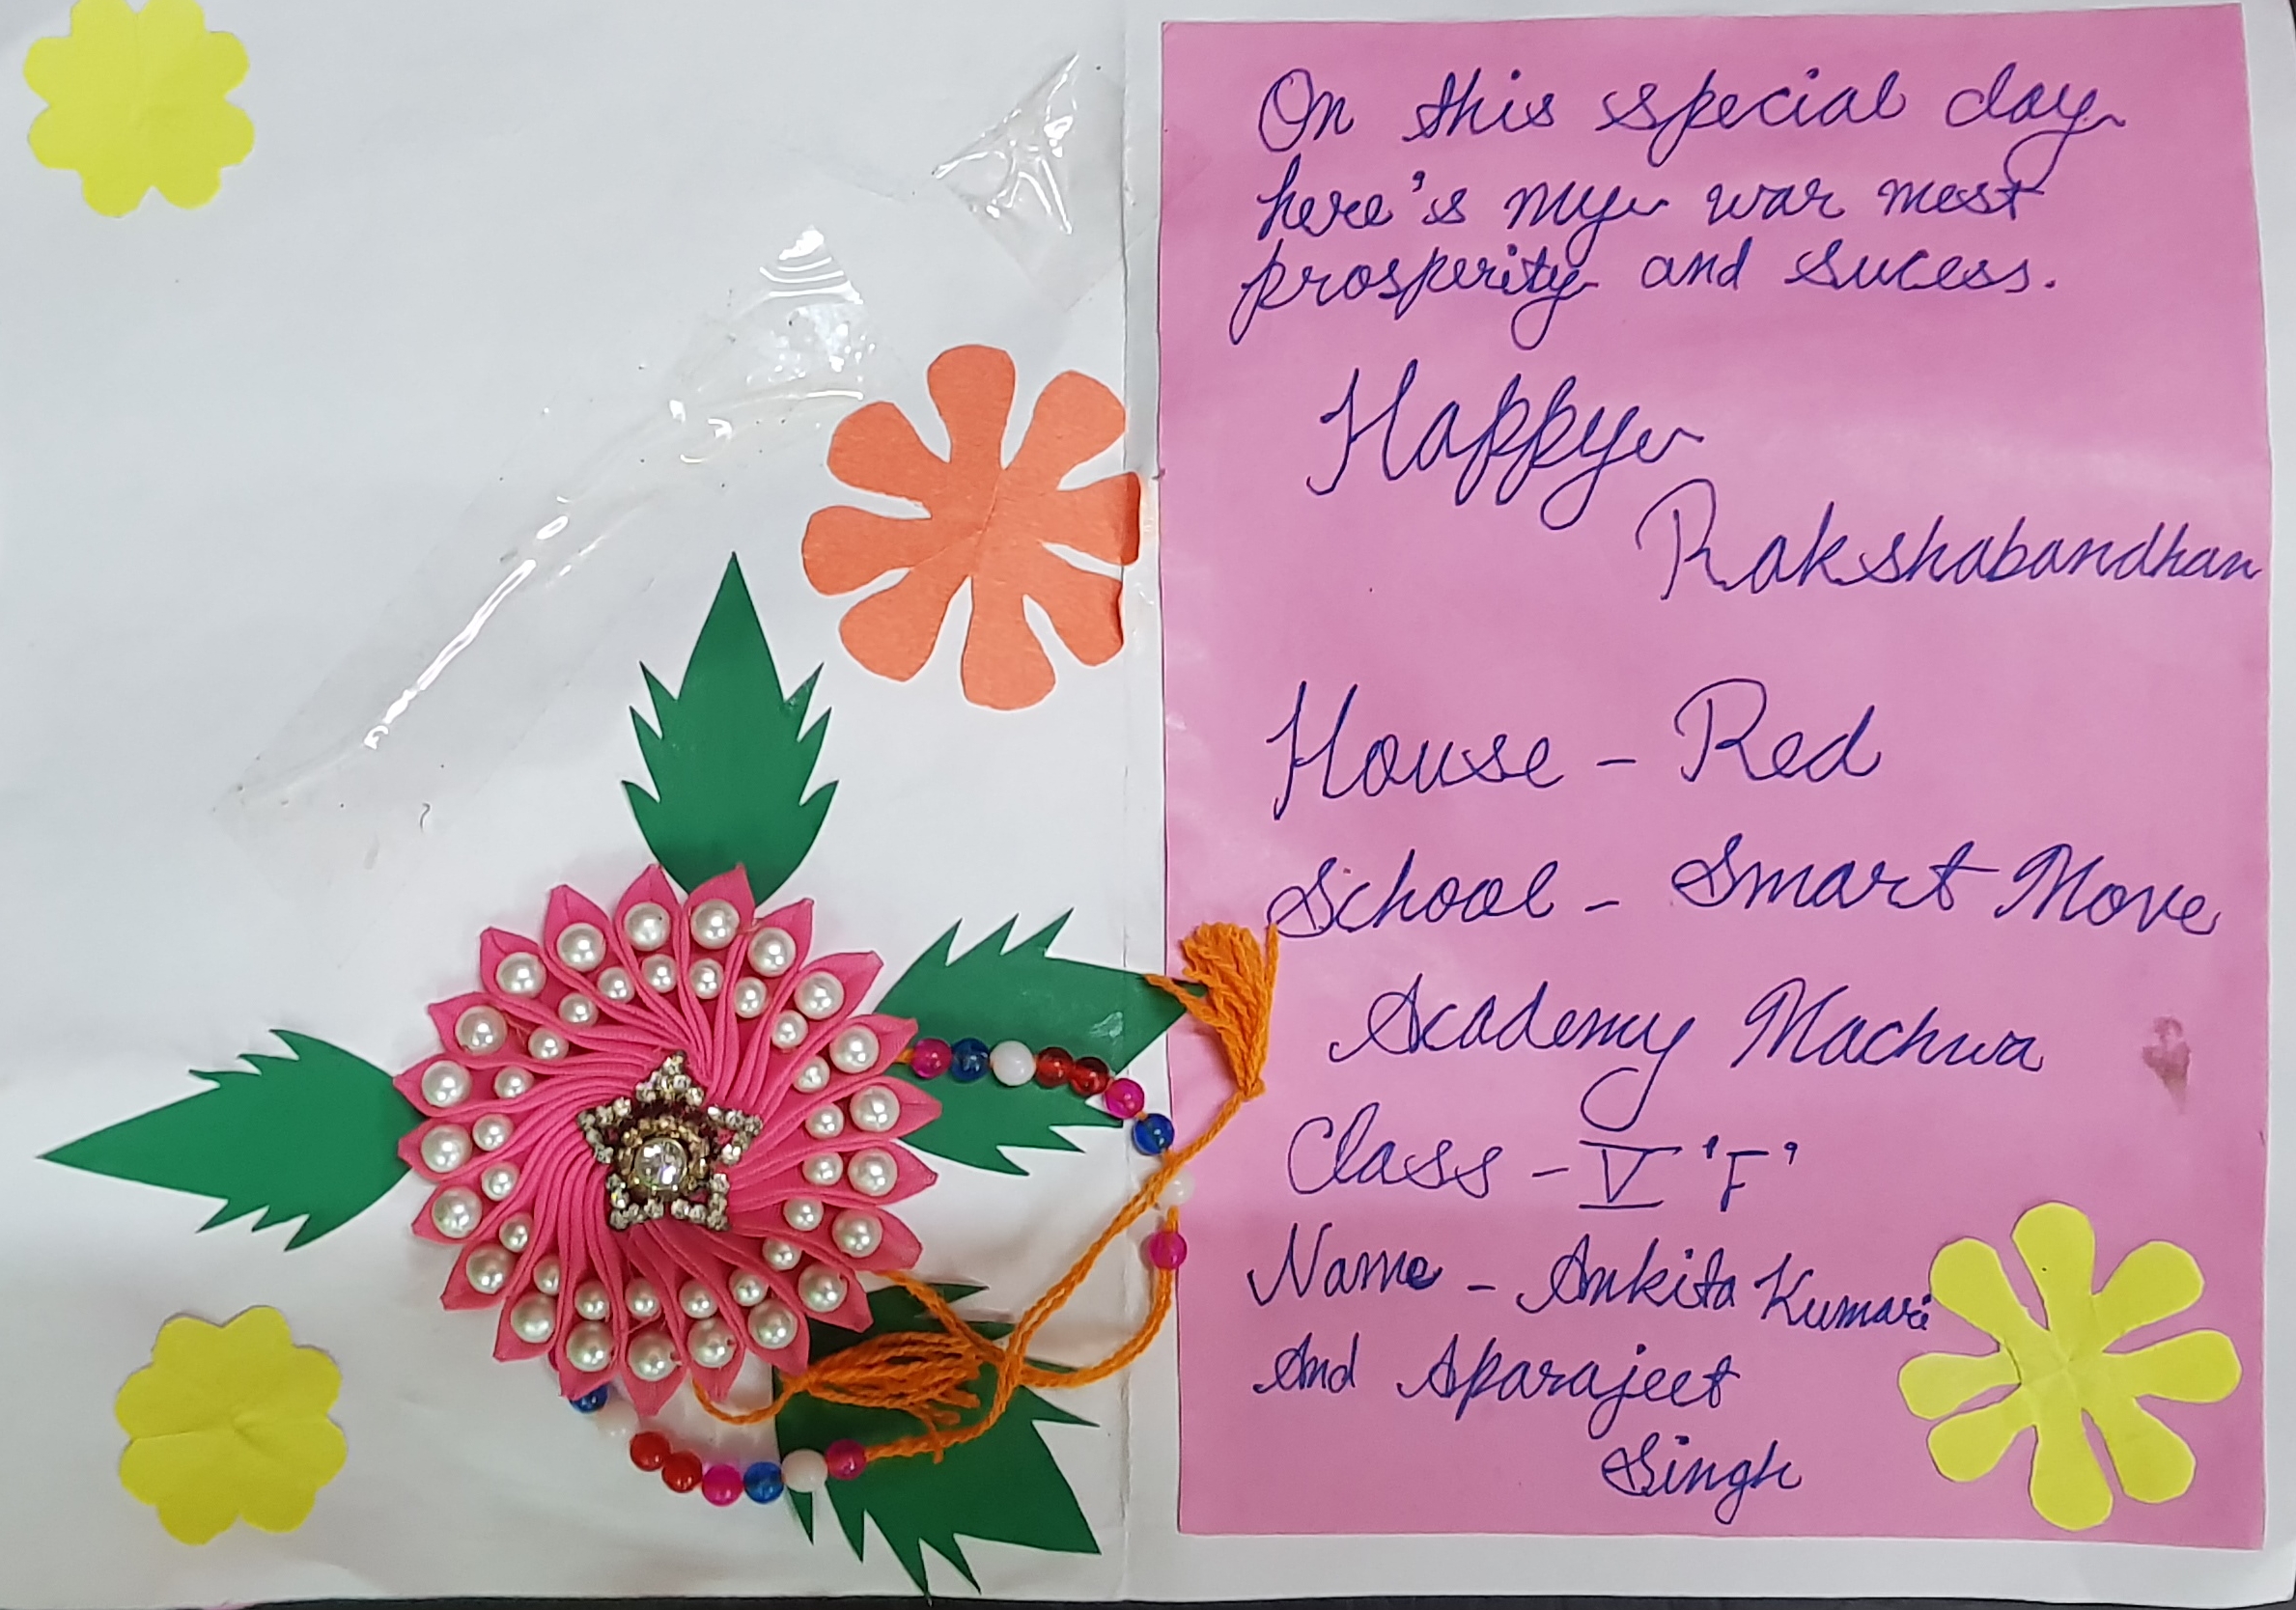 On this special day
here's my war mest
prosperity and sucess.
Happy
Rakshabandhan
House - Red
School - Smart Move
Academy Machwa
Class - V 'F'
Name - Ankita Kumari
And Aparajeet
Singh